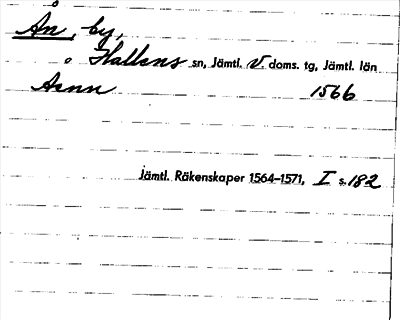 Ån, by,
Hallens sn, Jämtl. v. doms. tg, Jämtl. län
Åenn 1566
Jämtl. Räkenskaper 1564–1571, I s. 182